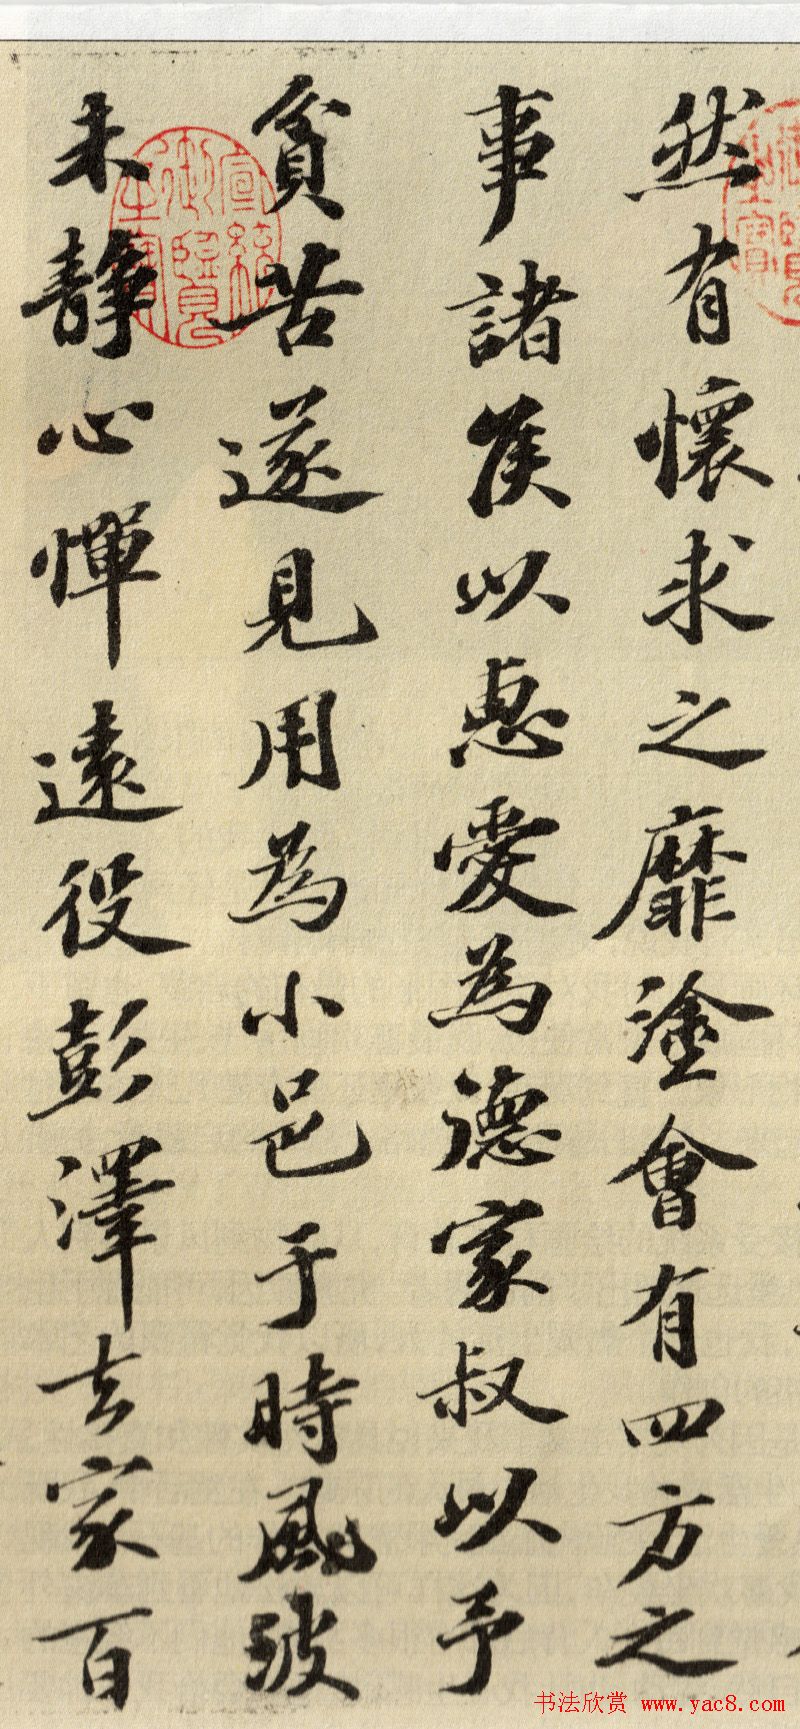 然有懷求之靡塗會有四方之
事諸侯以惠愛為德家叔以予
貧苦遂見用為小邑于時風波
未靜心憚遠役彭澤去家百
宣統
御覽
之寶
书法欣赏 www.yac8.com